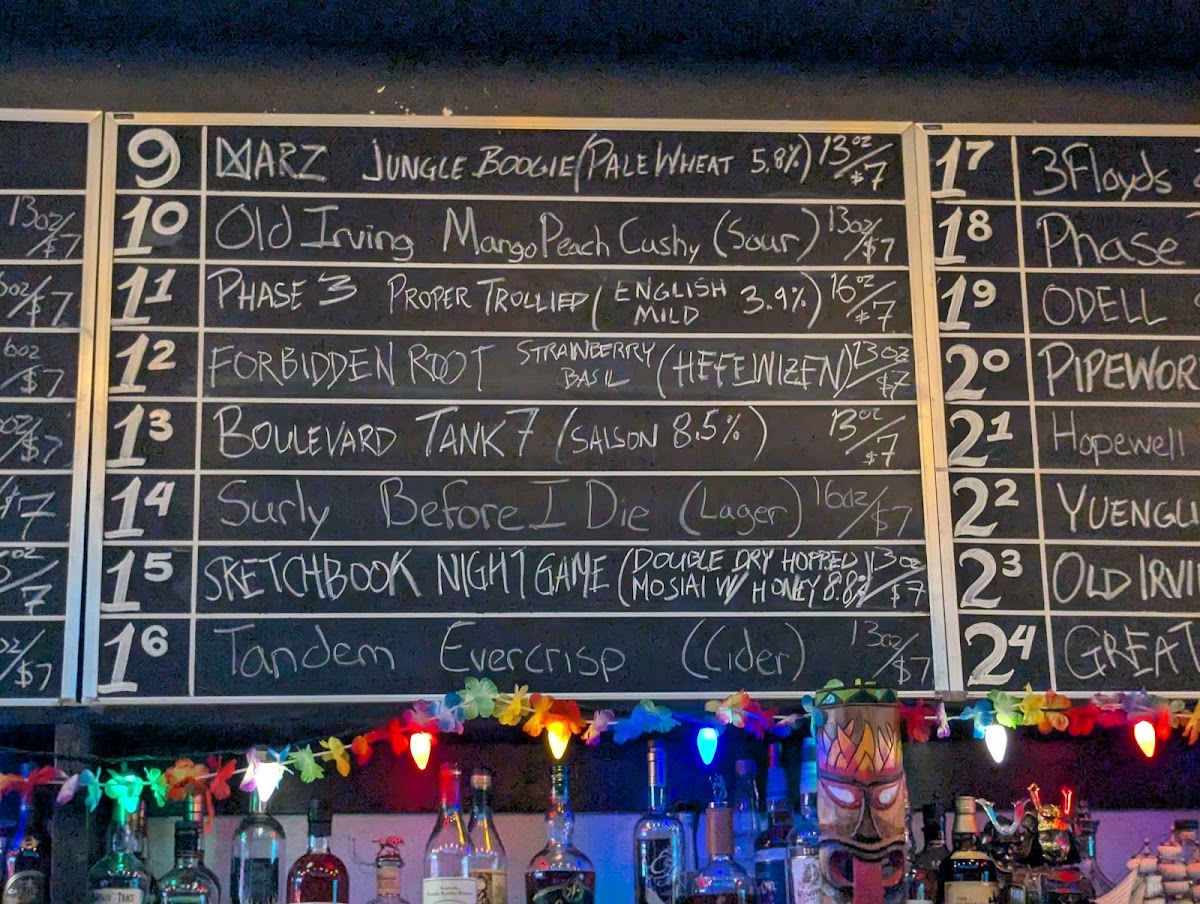 13oz/$7
oz/$7
oz/$7
oz/$7
$7
oz/$7
oz/$7
9 MARZ JUNGLE BOOGIE (PALE WHEAT 5.8%) 13oz/$7
10 Old Irving Mango Peach Cushy (Sour) 13oz/$7
11 PHASE 3 PROPER TROLLIED (ENGLISH MILD 3.9%) 16oz/$7
12 FORBIDDEN ROOT STRAWBERRY BASIL (HEFEWIZEN) 13oz/$7
13 BOULEVARD TANK 7 (SAISON 8.5%) 13oz/$7
14 Surly Before I Die (Lager) 16oz/$7
15 SKETCHBOOK NIGHT GAME (DOUBLE DRY HOPPED MOSIAI W/ HONEY 8.8%) 13oz/$7
16 Tandem Evercrisp (Cider) 13oz/$7
17 3Floyds
18 Phase
19 ODELL
20 PIPEWOR
21 Hopewell
22 YUENGL
23 OLD IRVI
24 GREAT